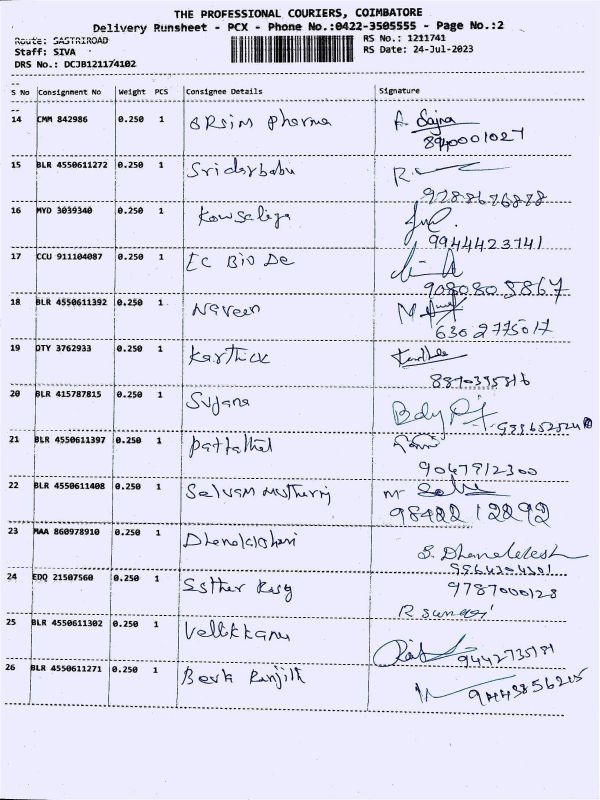 THE PROFESSIONAL COURIERS, COIMBATORE
Delivery Runsheet - PCX - Phone No.:0422-3505555 - Page No.:2
Route: SASTRIROAD
RS No.: 1211741
Staff: SIVA
RS Date: 24-Jul-2023
DRS No.: DCJB121174102
S No Consignment No Weight PCS Consignee Details Signature
14 CMM 842986 0.250 1 Pharma A. Sajna
8940001027
15 BLR 4550611272 0.250 1 Sridarbabu R.
9788676878
16 MYD 3039340 0.250 1 Kowsaliya
9944423741
17 CCU 911104087 0.250 1 EC Bio De
9080805867
18 BLR 4550611392 0.250 1 Naveen M
6302775017
19 DTY 3762933 0.250 1 Karthick
20 BLR 415787815 0.250 1 Sujana
21 BLR 4550611397 0.250 1
9047912300
22 BLR 4550611408 0.250 1 Selvam
9842212292
23 MAA 860978910 0.250 1
24 EDQ 21507560 0.250 1 Esther 9787000128
25 BLR 4550611302 0.250 1 Vellikkanu
9442735181
26 BLR 4550611271 0.250 1 Ranjith
9443856215